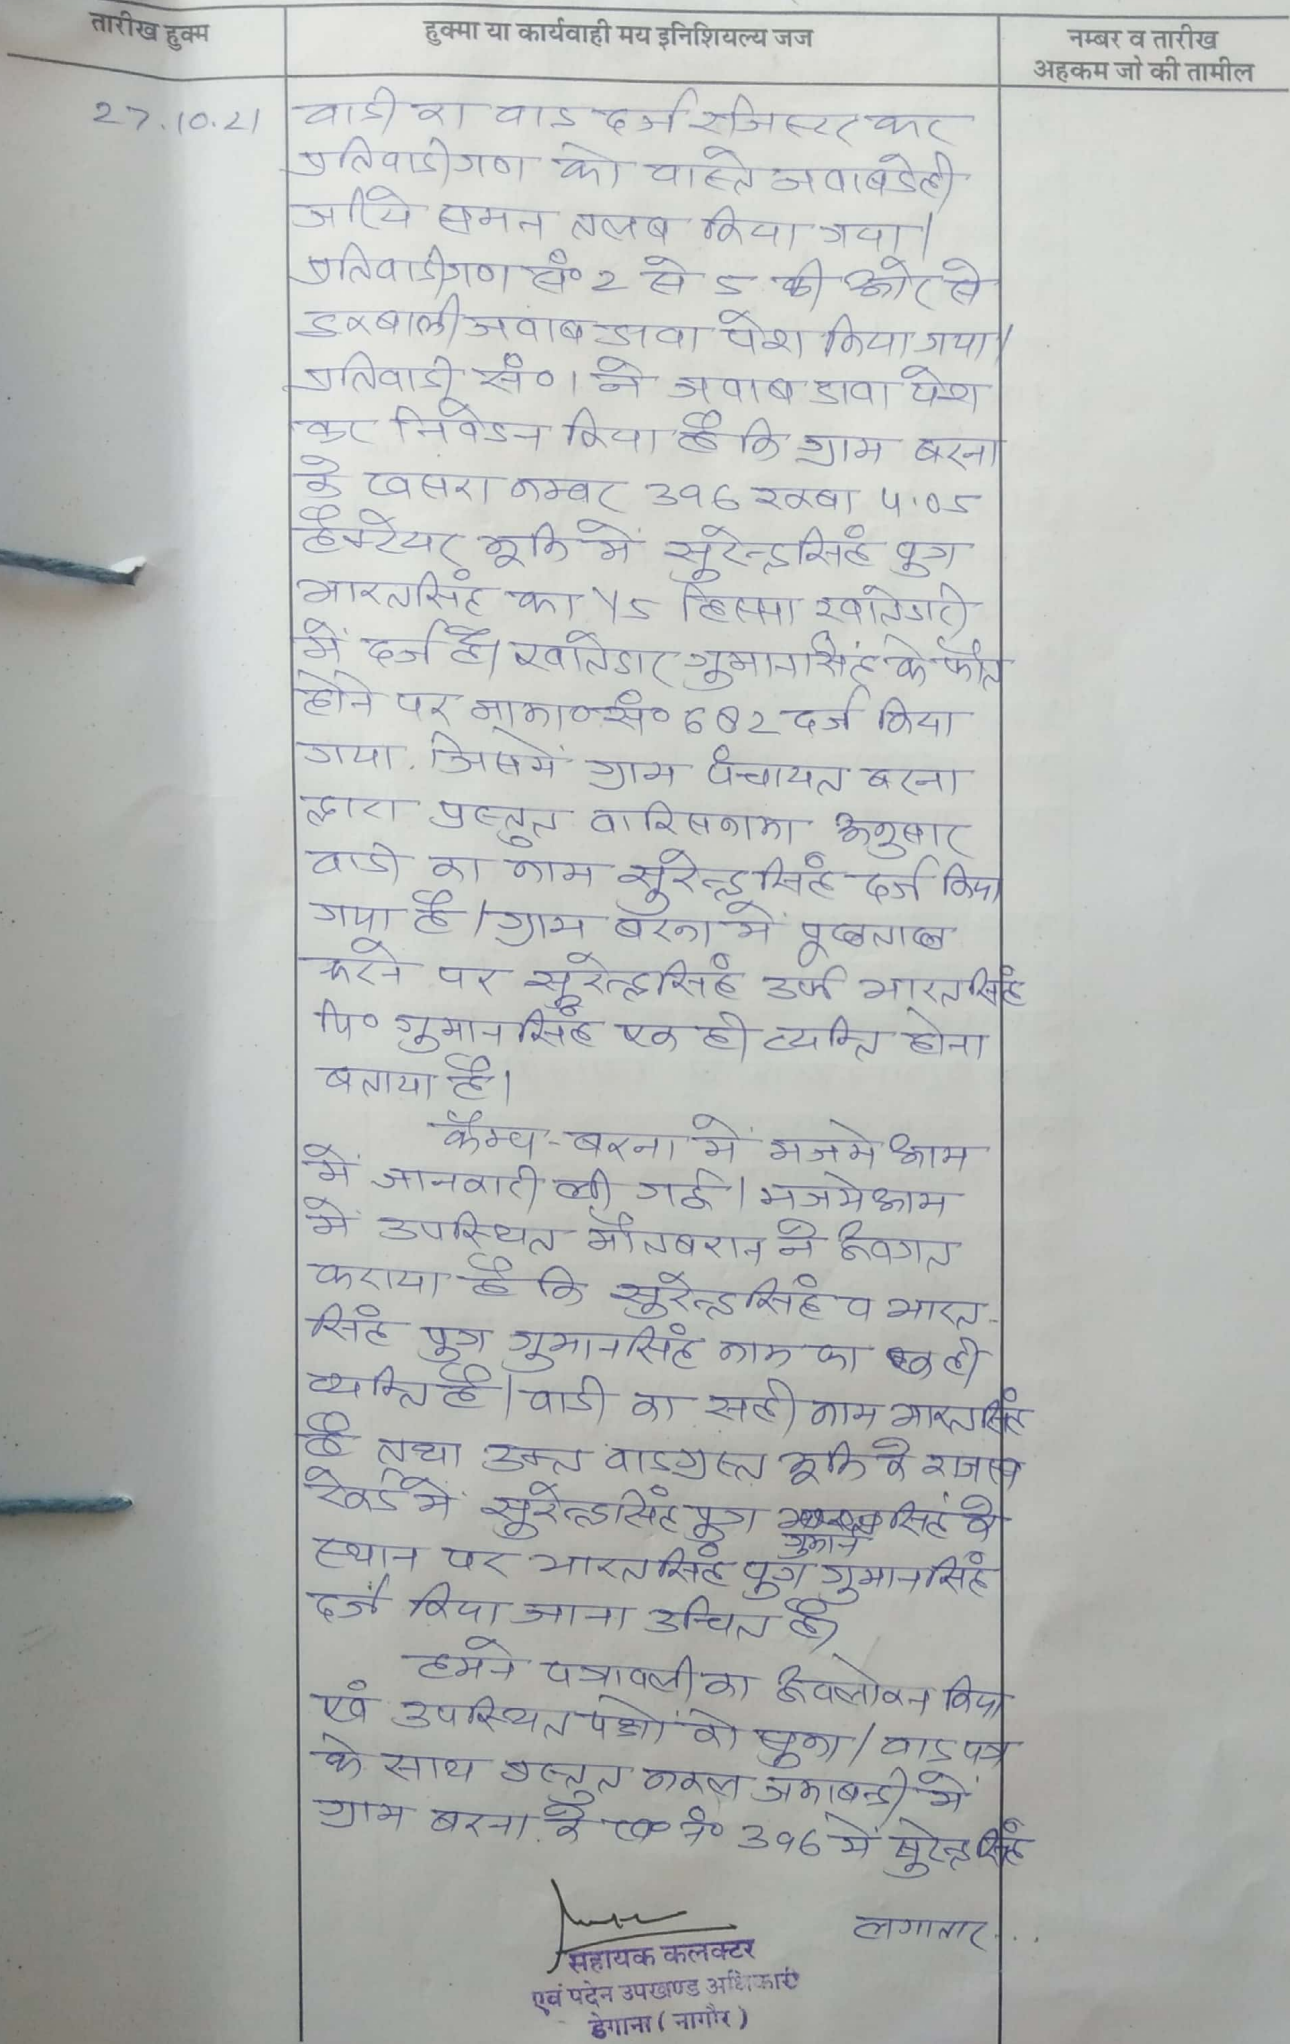 तारीख हुक्म
हुक्मा या कार्यवाही मय इनिशियल्य जज
नम्बर व तारीख
अहकाम जो की तामील
27.10.21
वादी का वाद दर्ज रजिस्टर कर
प्रतिवादीगण को वास्ते जवाबदेही
जरिये समन तलब किया गया।
प्रतिवादीगण सं० 2 से 5 की ओर से
इकबाली जवाब दावा पेश किया गया।
प्रतिवादी सं० 1 ने जवाब दावा पेश
कर निवेदन किया है कि ग्राम बरना
के खसरा नम्बर 396 रकबा 4.05
हैक्टेयर भूमि में सुरेन्द्रसिंह पुत्र
भारतसिंह का 1/5 हिस्सा खातेदारी
में दर्ज है। खातेदार गुमानसिंह के फौत
होने पर ना०क०सं० 682 दर्ज किया
गया. जिसमें ग्राम पंचायत बरना
द्वारा प्रस्तुत वारिसनामा अनुसार
वादी का नाम सुरेन्द्रसिंह दर्ज किया
गया है। ग्राम बरना में पूछताछ
करने पर सुरेन्द्रसिंह उर्फ भारतसिंह
पि० गुमानसिंह एक ही व्यक्ति होना
बताया है।
कैम्प - बरना में मजमे आम
में जानकारी ली गई। मजमेआम
में उपस्थित मौतबरान ने अवगत
कराया है कि सुरेन्द्रसिंह व भारत-
सिंह पुत्र गुमानसिंह नाम का एक ही
व्यक्ति है। वादी का सही नाम भारतसिंह
है तथा उक्त वादग्रस्त भूमि के राजस्व
रेकर्ड में सुरेन्द्रसिंह पुत्र सिंह के
गुमान
स्थान पर भारतसिंह पुत्र गुमानसिंह
दर्ज किया जाना उचित है।
हमने पत्रावली का अवलोकन किया
एवं उपस्थित पक्षों को सुना। वाद पत्र
के साथ प्रस्तुत नकल जमाबन्दी में
ग्राम बरना के ख० नं० 396 में सुरेन्द्रसिंह
लगातार...
सहायक कलक्टर
एवं पदेन उपखण्ड अधिकारी
डेगाना ( नागौर )